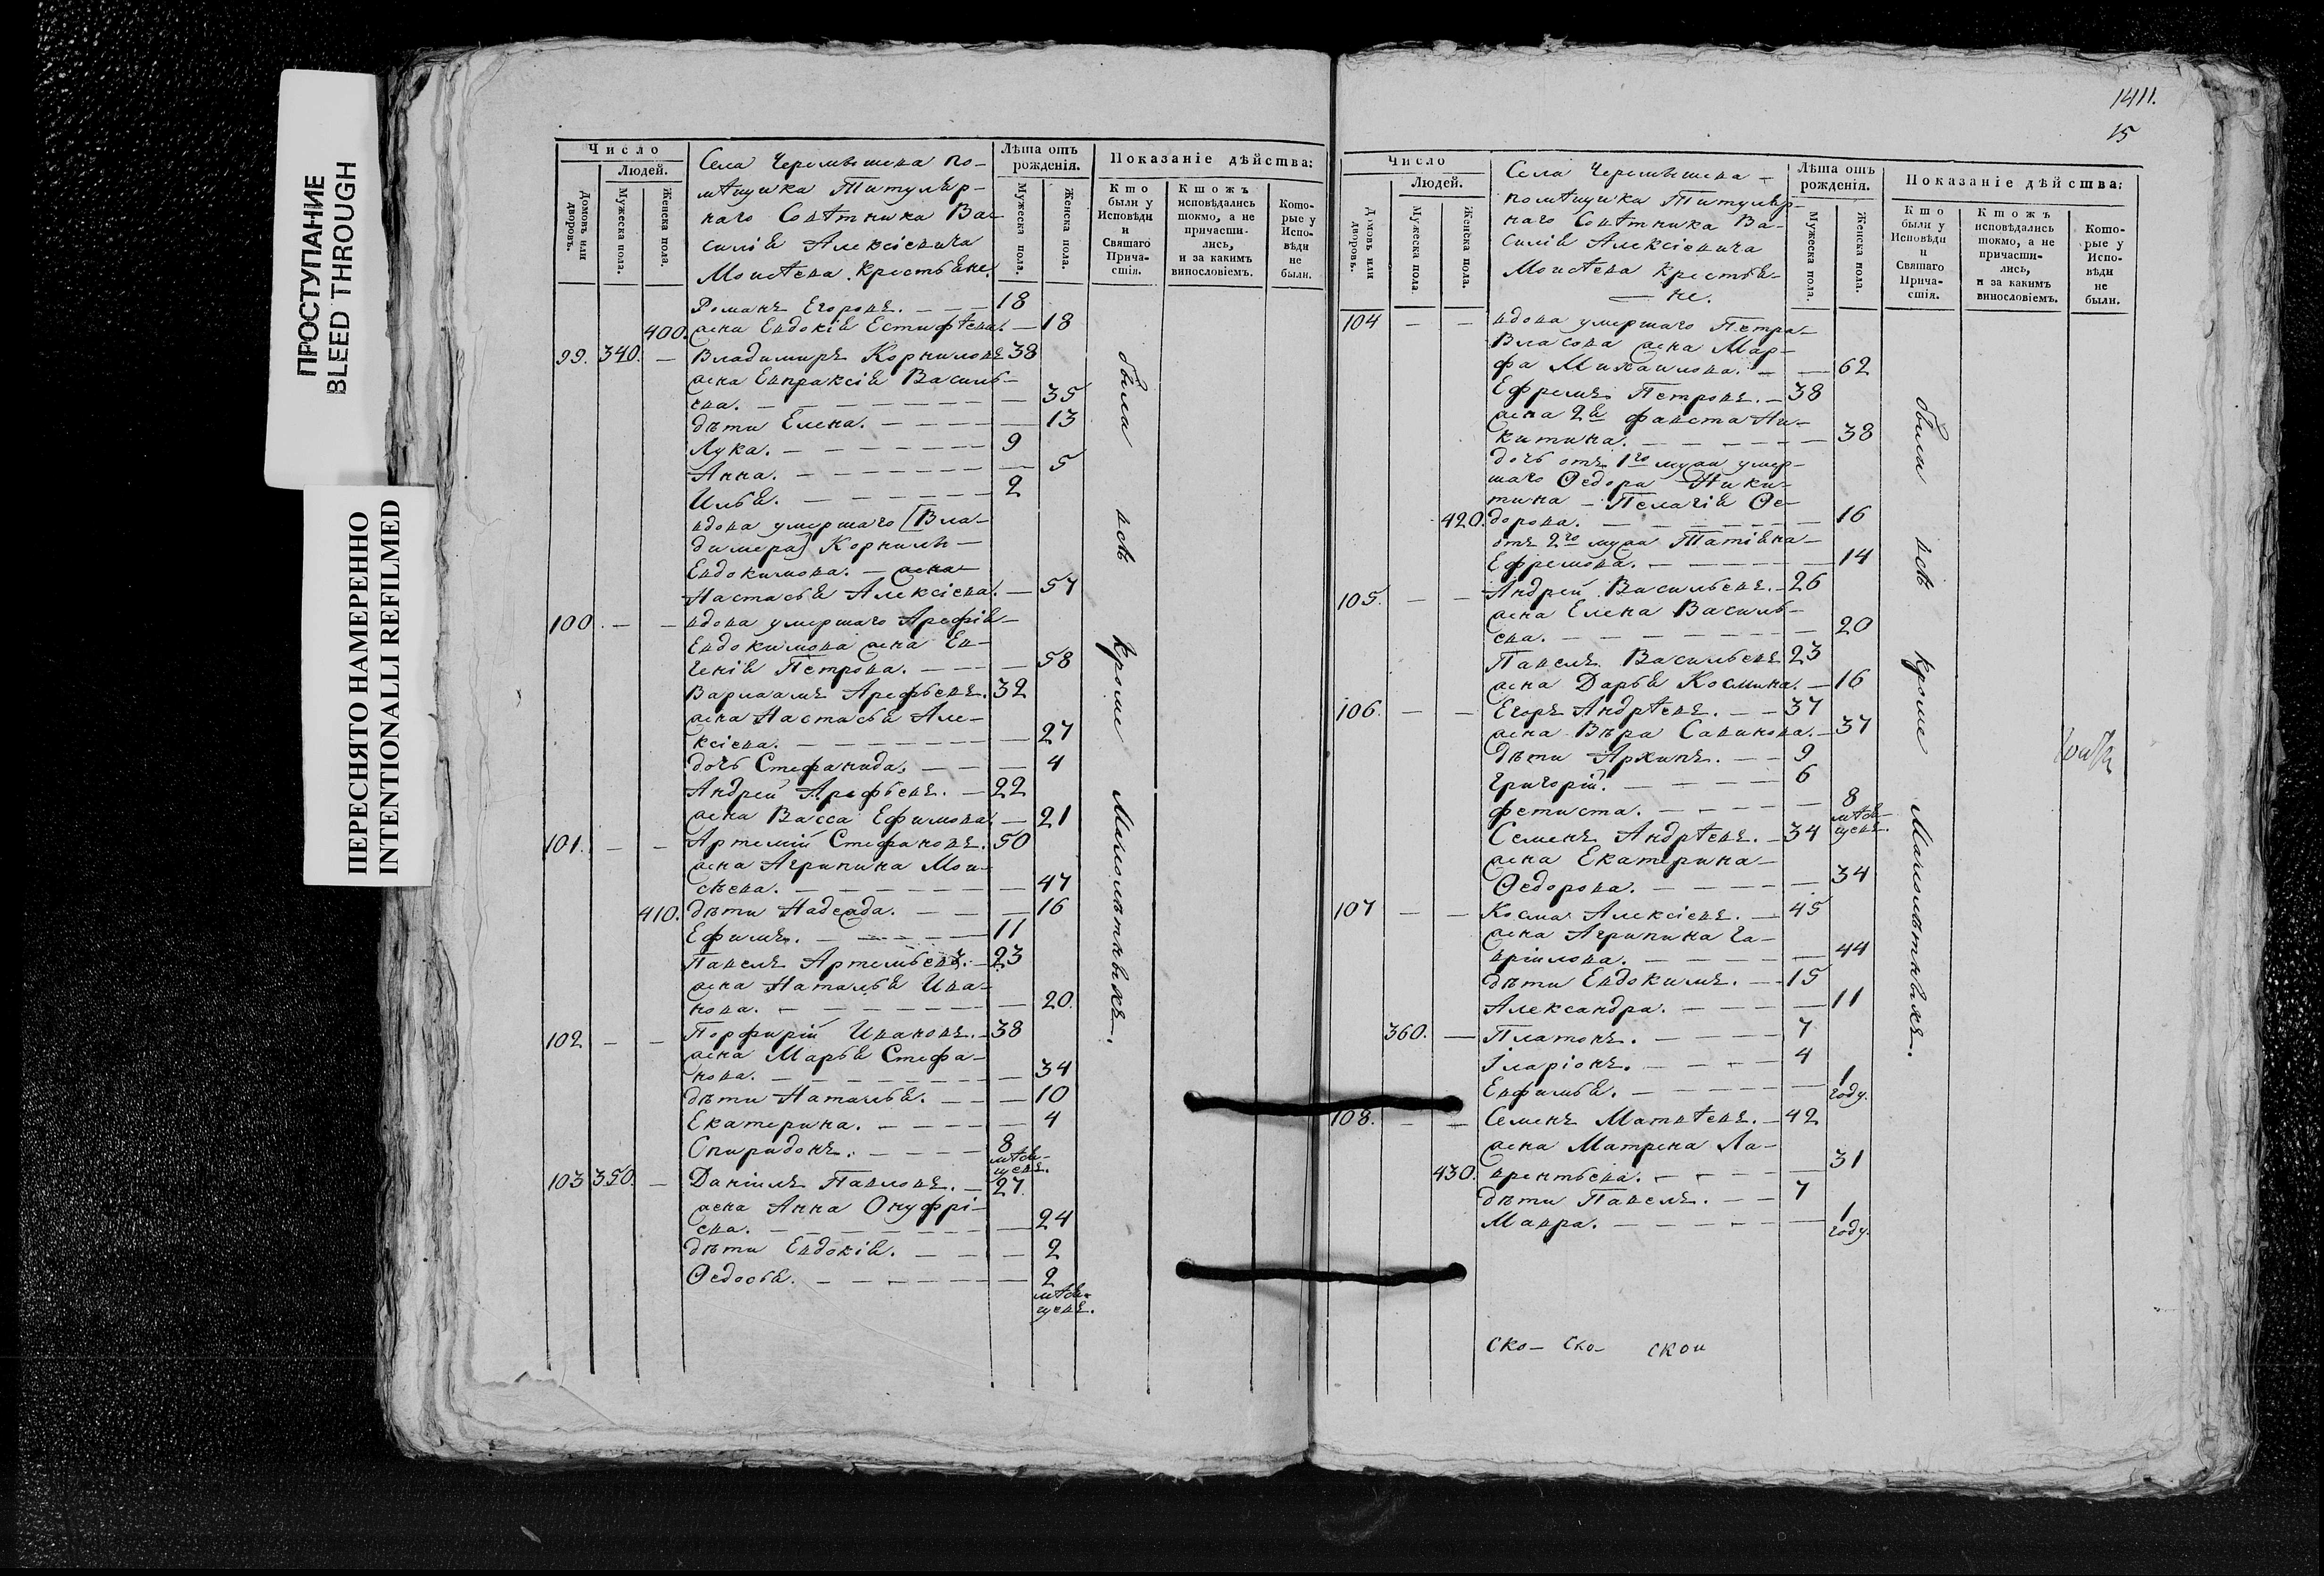 ПРОСТУПАНИЕ
BLEED THROUGH
ПЕРЕСНЯТО НАМЕРЕННО
INTENTIONALLI REFILMED
Число
Людей.
Домовъ или дворовъ.
Мужеска пола.
Женска пола.
Села Черемышева по-
мѣщика Титуляр-
наго Совѣтника Ва-
силія Алексіевича
Моисѣева Крестьяне.
Лѣта отъ рожденія.
Мужеска пола.
Женска пола.
Показаніе дѣйства:
Кто были у Исповѣди и Святаго Прича-стія.
Ктожъ исповѣдались токмо, а не причасти-лись, и за какимъ винословіемъ.
Кото-рые у Испо-вѣди не были.
Романъ Егоровъ. — 18
400. жена Евдокія Естифѣева. — 18
99. 340. — Владимиръ Корниловъ 38
жена Евпраксія Василь-
ева. — 35
дѣти Елена. — 13
Лука. — 9
Анна. — 5
Илья. — 2
вдова умершаго [Вла-
димера] Корнилы —
Евдокимова. — жена
Настасья Алексіева. — 57
100. — — вдова умершаго Арефія —
Евдокимова жена Ев-
генія Петрова. — 58
Варлаамъ Арефьевъ. 32
жена Настасья Але-
ксіева. — 27
дочь Стефанида. — 4
Андрей Арефьевъ. — 22
жена Васса Ефимова. — 21
101. — — Артемій Стефановъ. 50
жена Агрипина Мои-
сѣева. — 47
410. дѣти Надежда. — 16
Ефимъ. — 11
Павелъ Артемьевъ. — 23
жена Наталья Ива-
нова. — 20
102 — — Порфирій Ивановъ. — 38
жена Марья Стефа-
нова. — 34
дѣти Наталья. — 10
Екатерина. — 4
Спиридонъ. — 8 мѣся-цевъ.
103 350. — Даніилъ Павловъ. — 27.
жена Анна Онуфрі-
ева. — 24
дѣти Евдокія. — 2
Ѳедосья. — 2 мѣся-цевъ.
были всѣ кромѣ Малолѣтныхъ.
1411.
15
Число
Людей.
Домовъ или дворовъ.
Мужеска пола.
Женска пола.
Села Черемышева —
помѣщика Титуляр-
наго Совѣтника Ва-
силія Алексіевича
Моисѣева Крестья-
— не.
Лѣта отъ рожденія.
Мужеска пола.
Женска пола.
Показаніе дѣйства:
Кто были у Исповѣди и Святаго Прича-стія.
Ктожъ исповѣдались токмо, а не причасти-лись, и за какимъ винословіемъ.
Кото-рые у Испо-вѣди не были.
104 — — вдова умершаго Петра —
Власова жена Мар-
фа Михаилова. — 62
Ефремъ Петровъ. — 38
жена 2я фавста Ни-
китина. — 38
дочь отъ 1го мужа умер-
шаго Ѳедора Ники-
тина — Пелагія Ѳе-
420. дорова. — 16
отъ 2го мужа Татіяна —
Ефремова. — 14
105. — — Андрей Васильевъ. — 26
жена Елена Василь-
ева. — 20
Павелъ Васильевъ 23
жена Дарья Космина. — 16
106. — — Егоръ Андрѣевъ. — 37
жена Вѣра Савинова. — 37
дѣти Архипъ. — 9
Григорій. — 6
фетиста. — 8 мѣся-цевъ.
Семенъ Андрѣевъ. — 34
жена Екатерина —
Ѳедорова. — 34
107 — — Косма Алексіевъ. — 45
жена Агрипина Га-
вріилова. — 44
дѣти Евдокимъ. — 15
Александра. — 11
360. — Платонъ. — 7
Іларіонъ. — 4
Евфимья. — 1 году.
108. — — Семенъ Матвѣевъ. — 42
жена Матрена Ла-
430. врентьева. — 31
дѣти Павелъ. — 7
Мавра. — 1 году.
были всѣ кромѣ Малолѣтныхъ.
ско- ско- скои